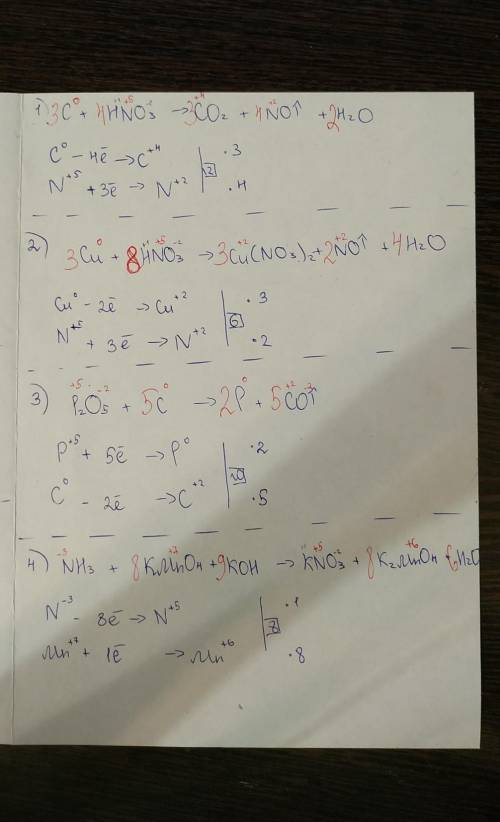 1) 3C⁰ + 4H⁺N⁺⁵O₃⁻² → 3C⁺⁴O₂ + 4N⁺²O↑ + 2H₂O
C⁰ - 4ē → C⁺⁴ | · 3
N⁺⁵ + 3ē → N⁺² | 12 | · 4
2) 3Cu⁰ + 8H⁺N⁺⁵O₃⁻² → 3Cu⁺²(NO₃)₂ + 2N⁺²O↑ + 4H₂O
Cu⁰ - 2ē → Cu⁺² | · 3
N⁺⁵ + 3ē → N⁺² | 6 | · 2
3) P₂⁺⁵O₅⁻² + 5C⁰ → 2P⁰ + 5C⁺²O⁻²↑
P⁺⁵ + 5ē → P⁰ | · 2
C⁰ - 2ē → C⁺² | 10 | · 5
4) N⁻³H₃ + 8KMn⁺⁷O₄ + 9KOH → K⁺N⁺⁵O₃⁻² + 8K₂Mn⁺⁶O₄ H₂O
N⁻³ - 8ē → N⁺⁵ | · 1
Mn⁺⁷ + 1ē → Mn⁺⁶ | 8 | · 8